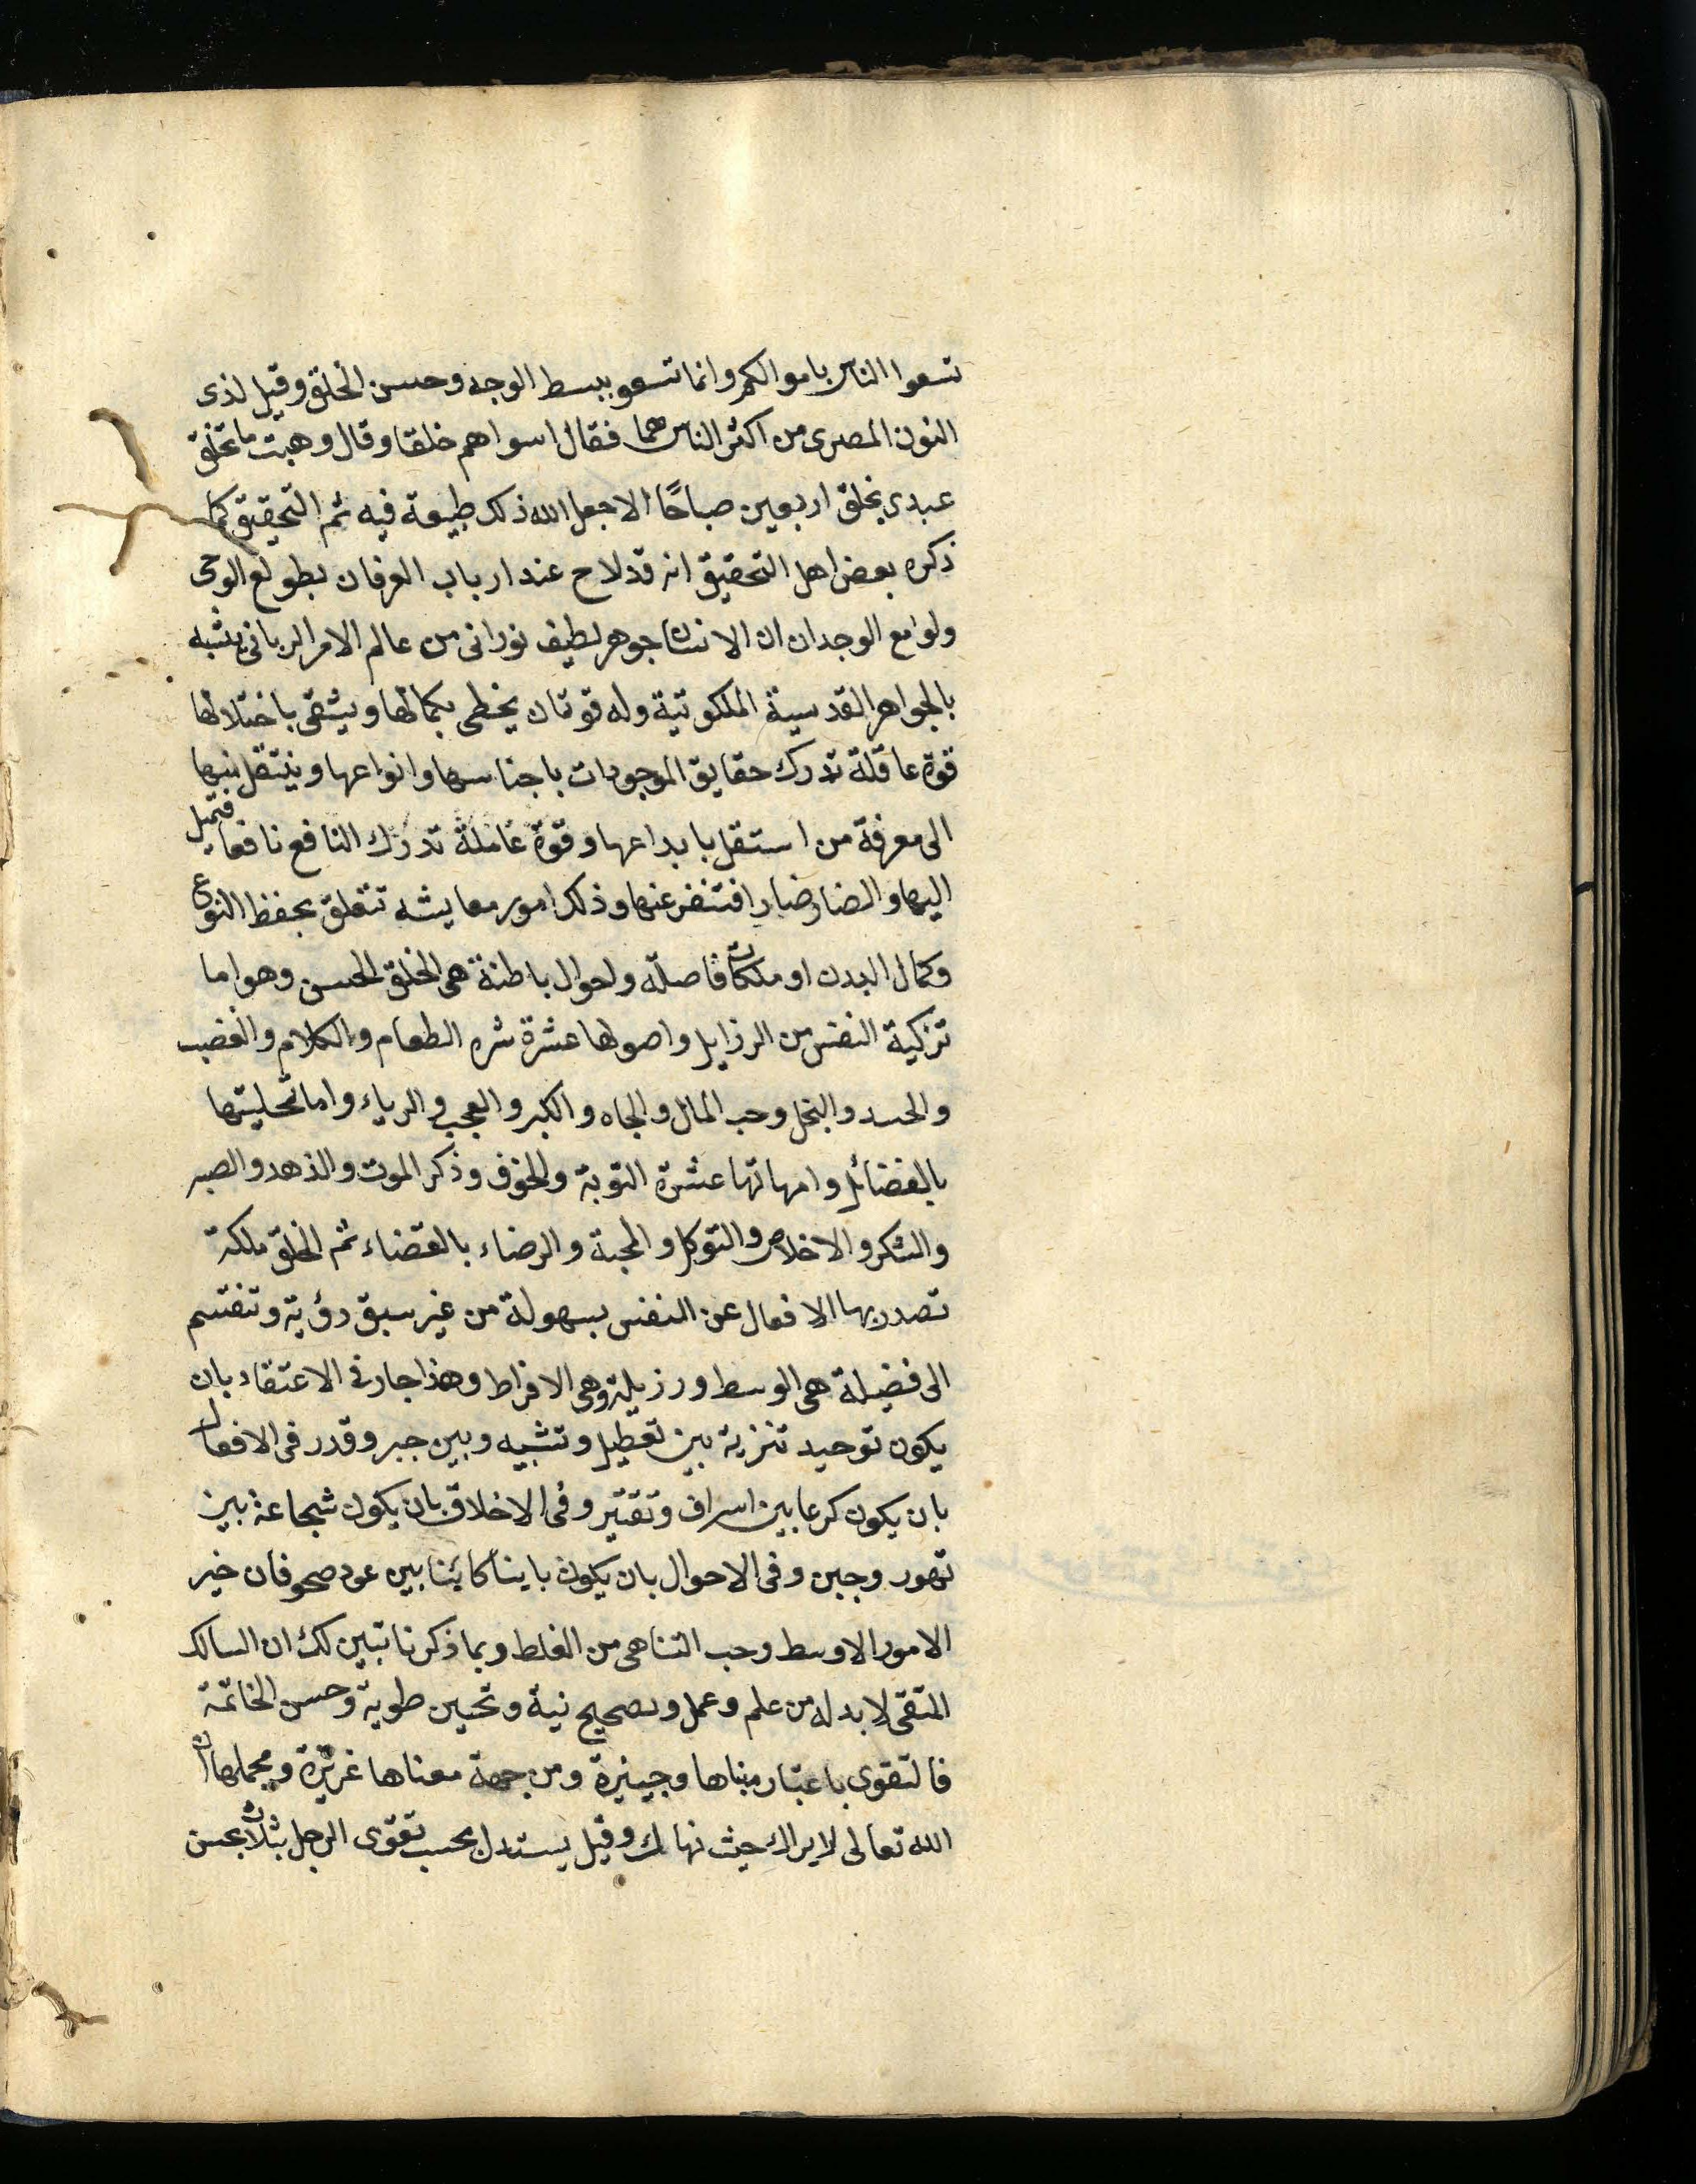 تسعوا الناس باموالكم وانما تسعو ببسط الوجه وحسن الخلق وقيل لذى
النون المصرى من اكثر الناس هما فقال اسواهم خلقا وقال وهب ما تخلق
عبدى بخلق اربعين صباحًا الا جعل الله ذلك طبيعة فيه ثم التحقيق كما
ذكره بعض اهل التحقيق انه قد لاح عند ارباب العرفان بطولع الوحى
ولوامع الوجدان ان الانسان جوهر لطيف نورانى من عالم الامر الربانى يشبه
بالجواهر القدسية الملكوتية وله قوتان يحظى بكمالها ويشقى باختلالها
قوة عاقلة تدرك حقايق الموجودات باجناسها وانواعها وينتقل منها
الى معرفة من استقل بابداعها وقوة عاملة تدرك النافع نافعا فتميل
اليها والضار ضارا فتنفر عنها وذلك امور معايشه تتعلق بحفظ النوع
وكمال البدن او ملكات فاصلة ولحوال باطنة هى الخلق الحسن وهو اما
تزكية النفس من الرزايل واصولها عشرة شره الطعام والكلام والغضب
والحسد والبخل وحب المال والجاه والكبر والعجب والرياء واما تحليتها
بالفضائل وامهاتها عشرة التوبة والخوف وذكر الموت والذهد والصبر
والشكر والاخلاص والتوكل والمحبة والرضاء بالقضاء ثم الخلق ملكة
تصدر بها الافعال عن النفس بسهولة من غير سبق رؤية وتنقسم
الى فضيلة هى الوسط ورزيلة وهى الافراط وهذا جار فى الاعتقاد بان
يكون توحيد تنزية بين تعطيل وتشبيه وبين جبر وقدر فى الافعال
بان يكون كرما بين اسراف وتقتير وفى الاخلاق بان يكون شجاعة بين
تهور وجبن وفى الاحوال بان يكون باينا كاينا بين عود صحو فان خير
الامور الاوسط وحب التناهى من الغلط وبما ذكرنا تبين لك ان السالك
المتقى لا بد له من علم وعمل وتصحيح نية وتحسين طوية وحسن الخاتمة
فالتقوى باعتبار مبناها وجيزة ومن جهة معناها غزيزة ومجملها ان
الله تعالى لا يراك حيث نهاك وقيل يستدل بحسب تقوى الرجل بثلاث بحسن